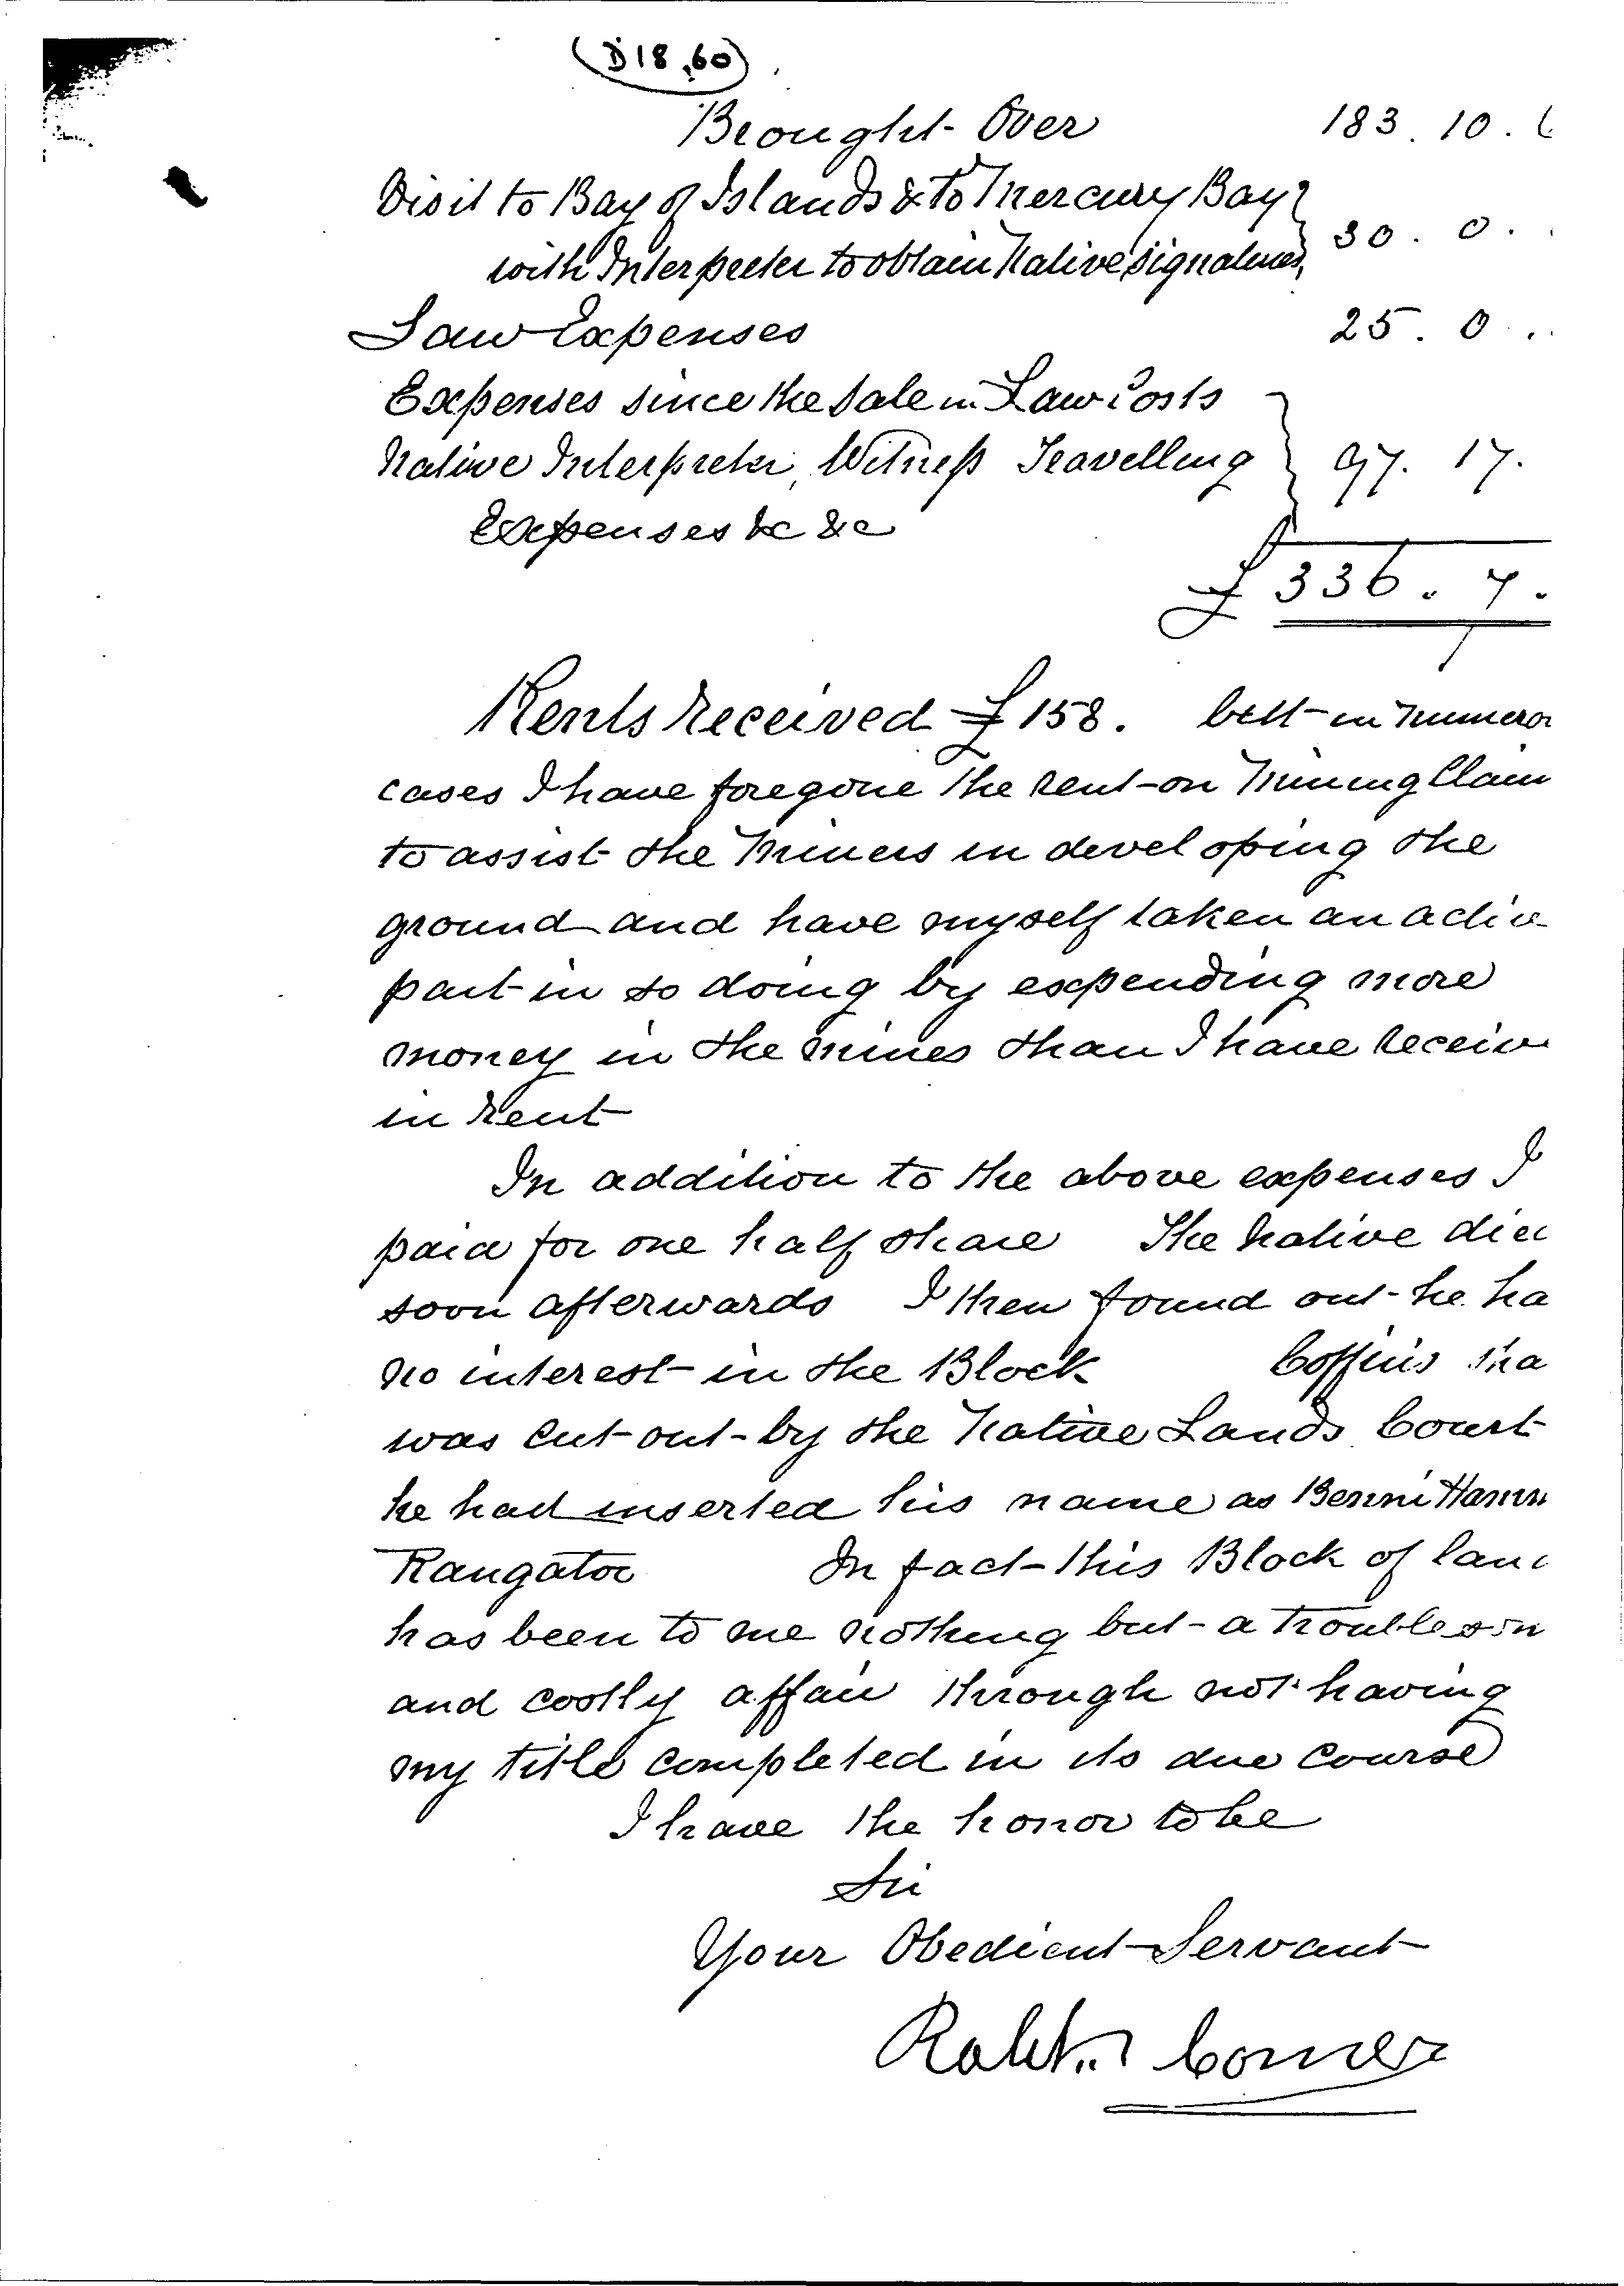 (D18,60)
Brought Over 183. 10. 6
Visit to Bay of Islands & to Mercury Bay 30. 0.
with Interpreter to obtain Native signatures
Law Expenses 25. 0.
Expenses since the sale in Law Costs
Native Interpreter, Witness Travelling 97. 17.
Expenses &c &c
£ 336. 7.
Rents received £158. but in numero
cases I have foregone the rent on Mining Claim
to assist the Miners in developing the
ground and have myself taken an activ
part in so doing by expending more
money in the mines than I have receiv
in Rent
In addition to the above expenses I
paid for one half share The Native died
soon afterwards I then found out he ha
no interest in the Block Coffins sha
was cut out by the Native Lands Court
he had inserted his name as
In fact this Block of lan
has been to me nothing but a troublesom
and costly affair through not having
my title completed in its due course
I have the honor to be
Sir
Your Obedient Servant
Robt. Comer